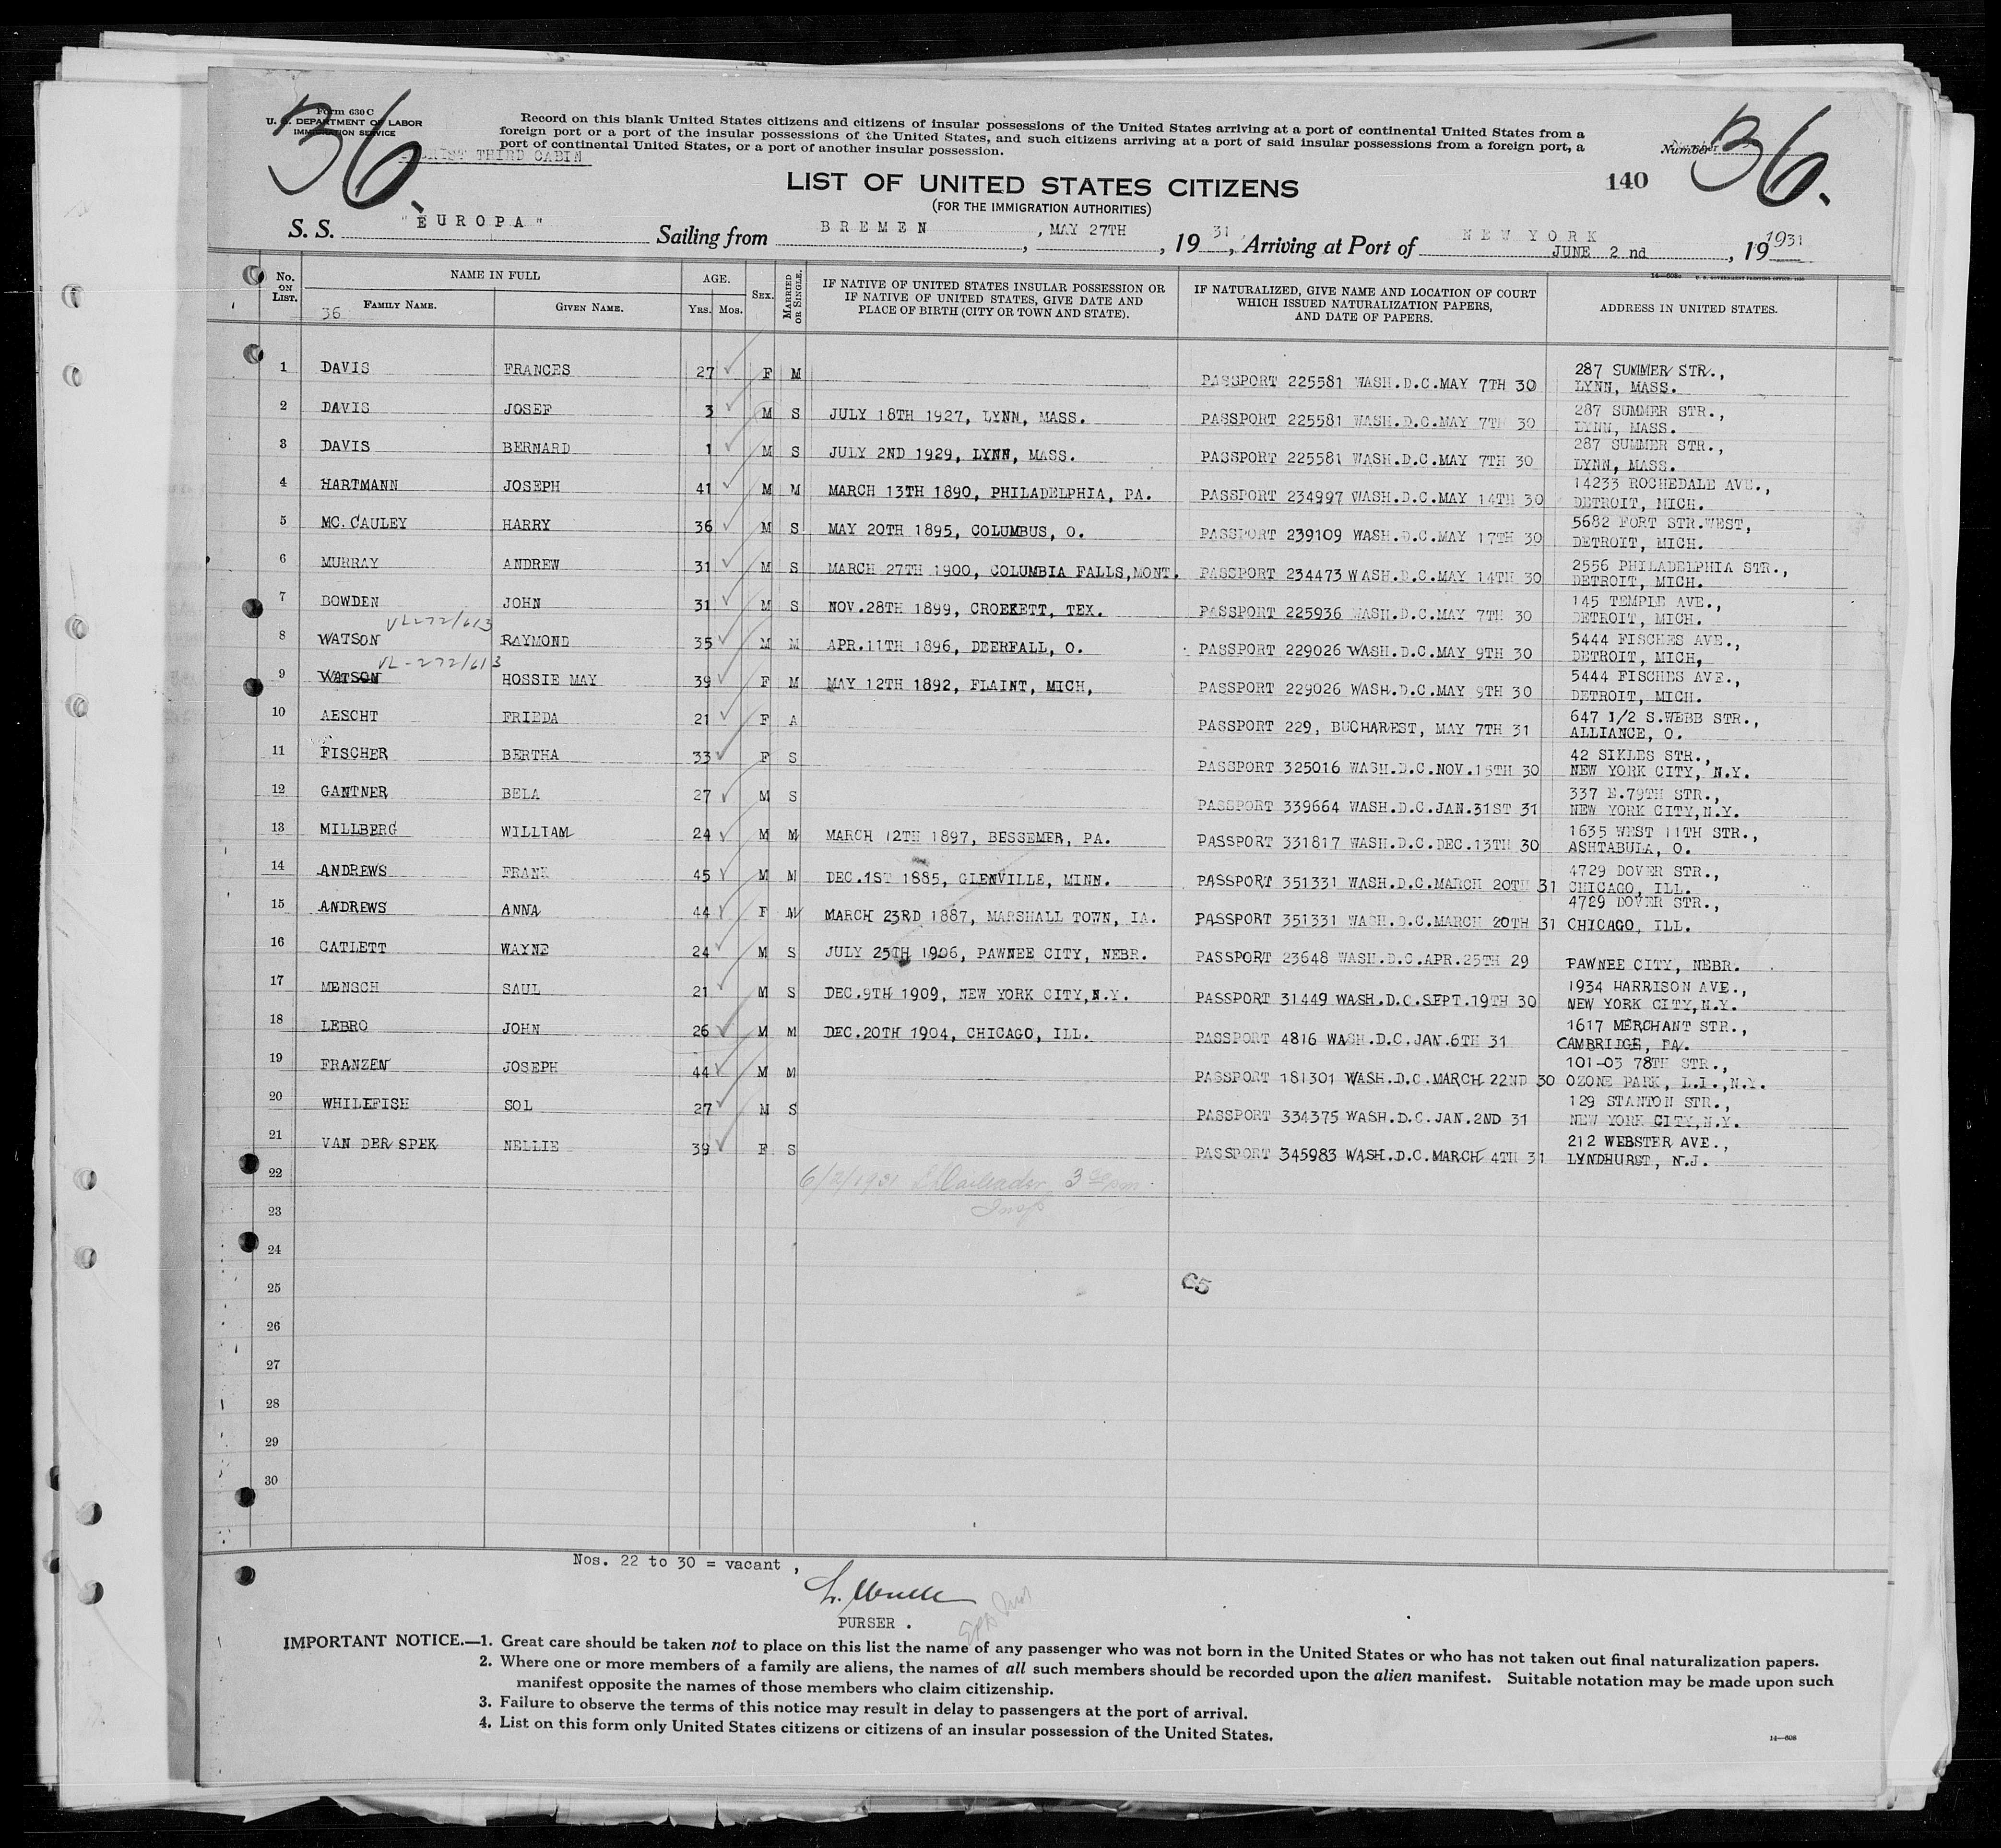 36.
Form 630 C
U. S. DEPARTMENT OF LABOR
IMMIGRATION SERVICE
THIRD CABIN
Record on this blank United States citizens and citizens of insular possessions of the United States arriving at a port of continental United States from a
foreign port or a port of the insular possessions of the United States, and such citizens arriving at a port of said insular possessions from a foreign port, a
port of continental United States, or a port of another insular possession.
Number 36.
LIST OF UNITED STATES CITIZENS
140
(FOR THE IMMIGRATION AUTHORITIES)
S. S. "EUROPA" Sailing from BREMEN, MAY 27TH, 1931, Arriving at Port of NEW YORK JUNE 2 nd, 19 1931
14—608c U. S. GOVERNMENT PRINTING OFFICE: 1930
No. ON LIST. NAME IN FULL AGE. SEX. MARRIED OR SINGLE. IF NATIVE OF UNITED STATES INSULAR POSSESSION OR IF NATIVE OF UNITED STATES, GIVE DATE AND PLACE OF BIRTH (CITY OR TOWN AND STATE). IF NATURALIZED, GIVE NAME AND LOCATION OF COURT WHICH ISSUED NATURALIZATION PAPERS, AND DATE OF PAPERS. ADDRESS IN UNITED STATES.
36 FAMILY NAME. GIVEN NAME. YRS. MOS.
1 DAVIS FRANCES 27 F M PASSPORT 225581 WASH.D.C.MAY 7TH 30 287 SUMMER STR., LYNN, MASS.
2 DAVIS JOSEF 3 M S JULY 18TH 1927, LYNN, MASS. PASSPORT 225581 WASH.D.C.MAY 7TH 30 287 SUMMER STR., LYNN, MASS.
3 DAVIS BERNARD 1 M S JULY 2ND 1929, LYNN, MASS. PASSPORT 225581 WASH.D.C.MAY 7TH 30 287 SUMMER STR., LYNN, MASS.
4 HARTMANN JOSEPH 41 M M MARCH 13TH 1890, PHILADELPHIA, PA. PASSPORT 234997 WASH.D.C.MAY 14TH 30 14233 ROCHEDALE AVE., DETROIT, MICH.
5 MC.CAULEY HARRY 36 M S MAY 20TH 1895, COLUMBUS, O. PASSPORT 239109 WASH.D.C.MAY 17TH 30 5682 FORT STR.WEST, DETROIT, MICH.
6 MURRAY ANDREW 31 M S MARCH 27TH 1900, COLUMBIA FALLS,MONT. PASSPORT 234473 WASH.D.C.MAY 14TH 30 2556 PHILADELPHIA STR., DETROIT, MICH.
7 BOWDEN JOHN 31 M S NOV.28TH 1899, CROEKETT, TEX. PASSPORT 225936 WASH.D.C.MAY 7TH 30 145 TEMPLE AVE., DETROIT, MICH.
VL-272/613
8 WATSON RAYMOND 35 M M APR.11TH 1896, DEERFALL, O. PASSPORT 229026 WASH.D.C.MAY 9TH 30 5444 FISCHES AVE., DETROIT, MICH,
VL-272/613
9 WATSON HOSSIE MAY 39 F M MAY 12TH 1892, FLAINT, MICH, PASSPORT 229026 WASH.D.C.MAY 9TH 30 5444 FISCHES AVE., DETROIT, MICH.
10 AESCHT FRIEDA 21 F A PASSPORT 229, BUCHAREST, MAY 7TH 31 647 1/2 S.WEBB STR., ALLIANCE, O.
11 FISCHER BERTHA 33 F S PASSPORT 325016 WASH.D.C.NOV.15TH 30 42 SIKLES STR., NEW YORK CITY, N.Y.
12 GANTNER BELA 27 M S PASSPORT 339664 WASH.D.C.JAN.31ST 31 337 E.79TH STR., NEW YORK CITY,N.Y.
13 MILLBERG WILLIAM 24 M M MARCH 12TH 1897, BESSEMER, PA. PASSPORT 331817 WASH.D.C.DEC.13TH 30 1635 WEST 11TH STR., ASHTABULA, O.
14 ANDREWS FRANK 45 M M DEC.1ST 1885, GLENVILLE, MINN. PASSPORT 351331 WASH.D.C.MARCH 20TH 31 4729 DOVER STR., CHICAGO, ILL.
15 ANDREWS ANNA 44 F M MARCH 23RD 1887, MARSHALL TOWN, IA. PASSPORT 351331 WASH.D.C.MARCH 20TH 31 4729 DOVER STR., CHICAGO, ILL.
16 CATLETT WAYNE 24 M S JULY 25TH 1906, PAWNEE CITY, NEBR. PASSPORT 23648 WASH.D.C.APR.25TH 29 PAWNEE CITY, NEBR.
17 MENSCH SAUL 21 M S DEC.9TH 1909, NEW YORK CITY,N.Y. PASSPORT 31449 WASH.D.C.SEPT.19TH 30 1934 HARRISON AVE., NEW YORK CITY,N.Y.
18 LEBRO JOHN 26 M M DEC.20TH 1904, CHICAGO, ILL. PASSPORT 4816 WASH.D.C.JAN.6TH 31 1617 MERCHANT STR., CAMBRIDGE, PA.
19 FRANZEN JOSEPH 44 M M PASSPORT 181301 WASH.D.C.MARCH 22ND 30 101-03 78TH STR., OZONE PARK, L.I.,N.Y.
20 WHILEFISH SOL 27 M S PASSPORT 334375 WASH.D.C.JAN.2ND 31 129 STANTON STR., NEW YORK CITY,N.Y.
21 VAN DER SPEK NELLIE 39 F S PASSPORT 345983 WASH.D.C.MARCH 4TH 31 212 WEBSTER AVE., LYNDHURST, N.J.
22 6/2/1931 3 30 pm
23 Insp
24
25 C5
26
27
28
29
30
Nos. 22 to 30 = vacant ,
PURSER .
IMPORTANT NOTICE.—1. Great care should be taken not to place on this list the name of any passenger who was not born in the United States or who has not taken out final naturalization papers.
2. Where one or more members of a family are aliens, the names of all such members should be recorded upon the alien manifest. Suitable notation may be made upon such
manifest opposite the names of those members who claim citizenship.
3. Failure to observe the terms of this notice may result in delay to passengers at the port of arrival.
4. List on this form only United States citizens or citizens of an insular possession of the United States.
14—608